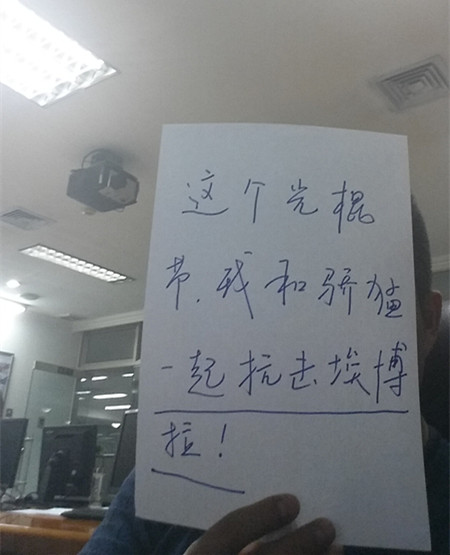 这个光棍
节，我和骄猛
一起抗击埃博
拉！